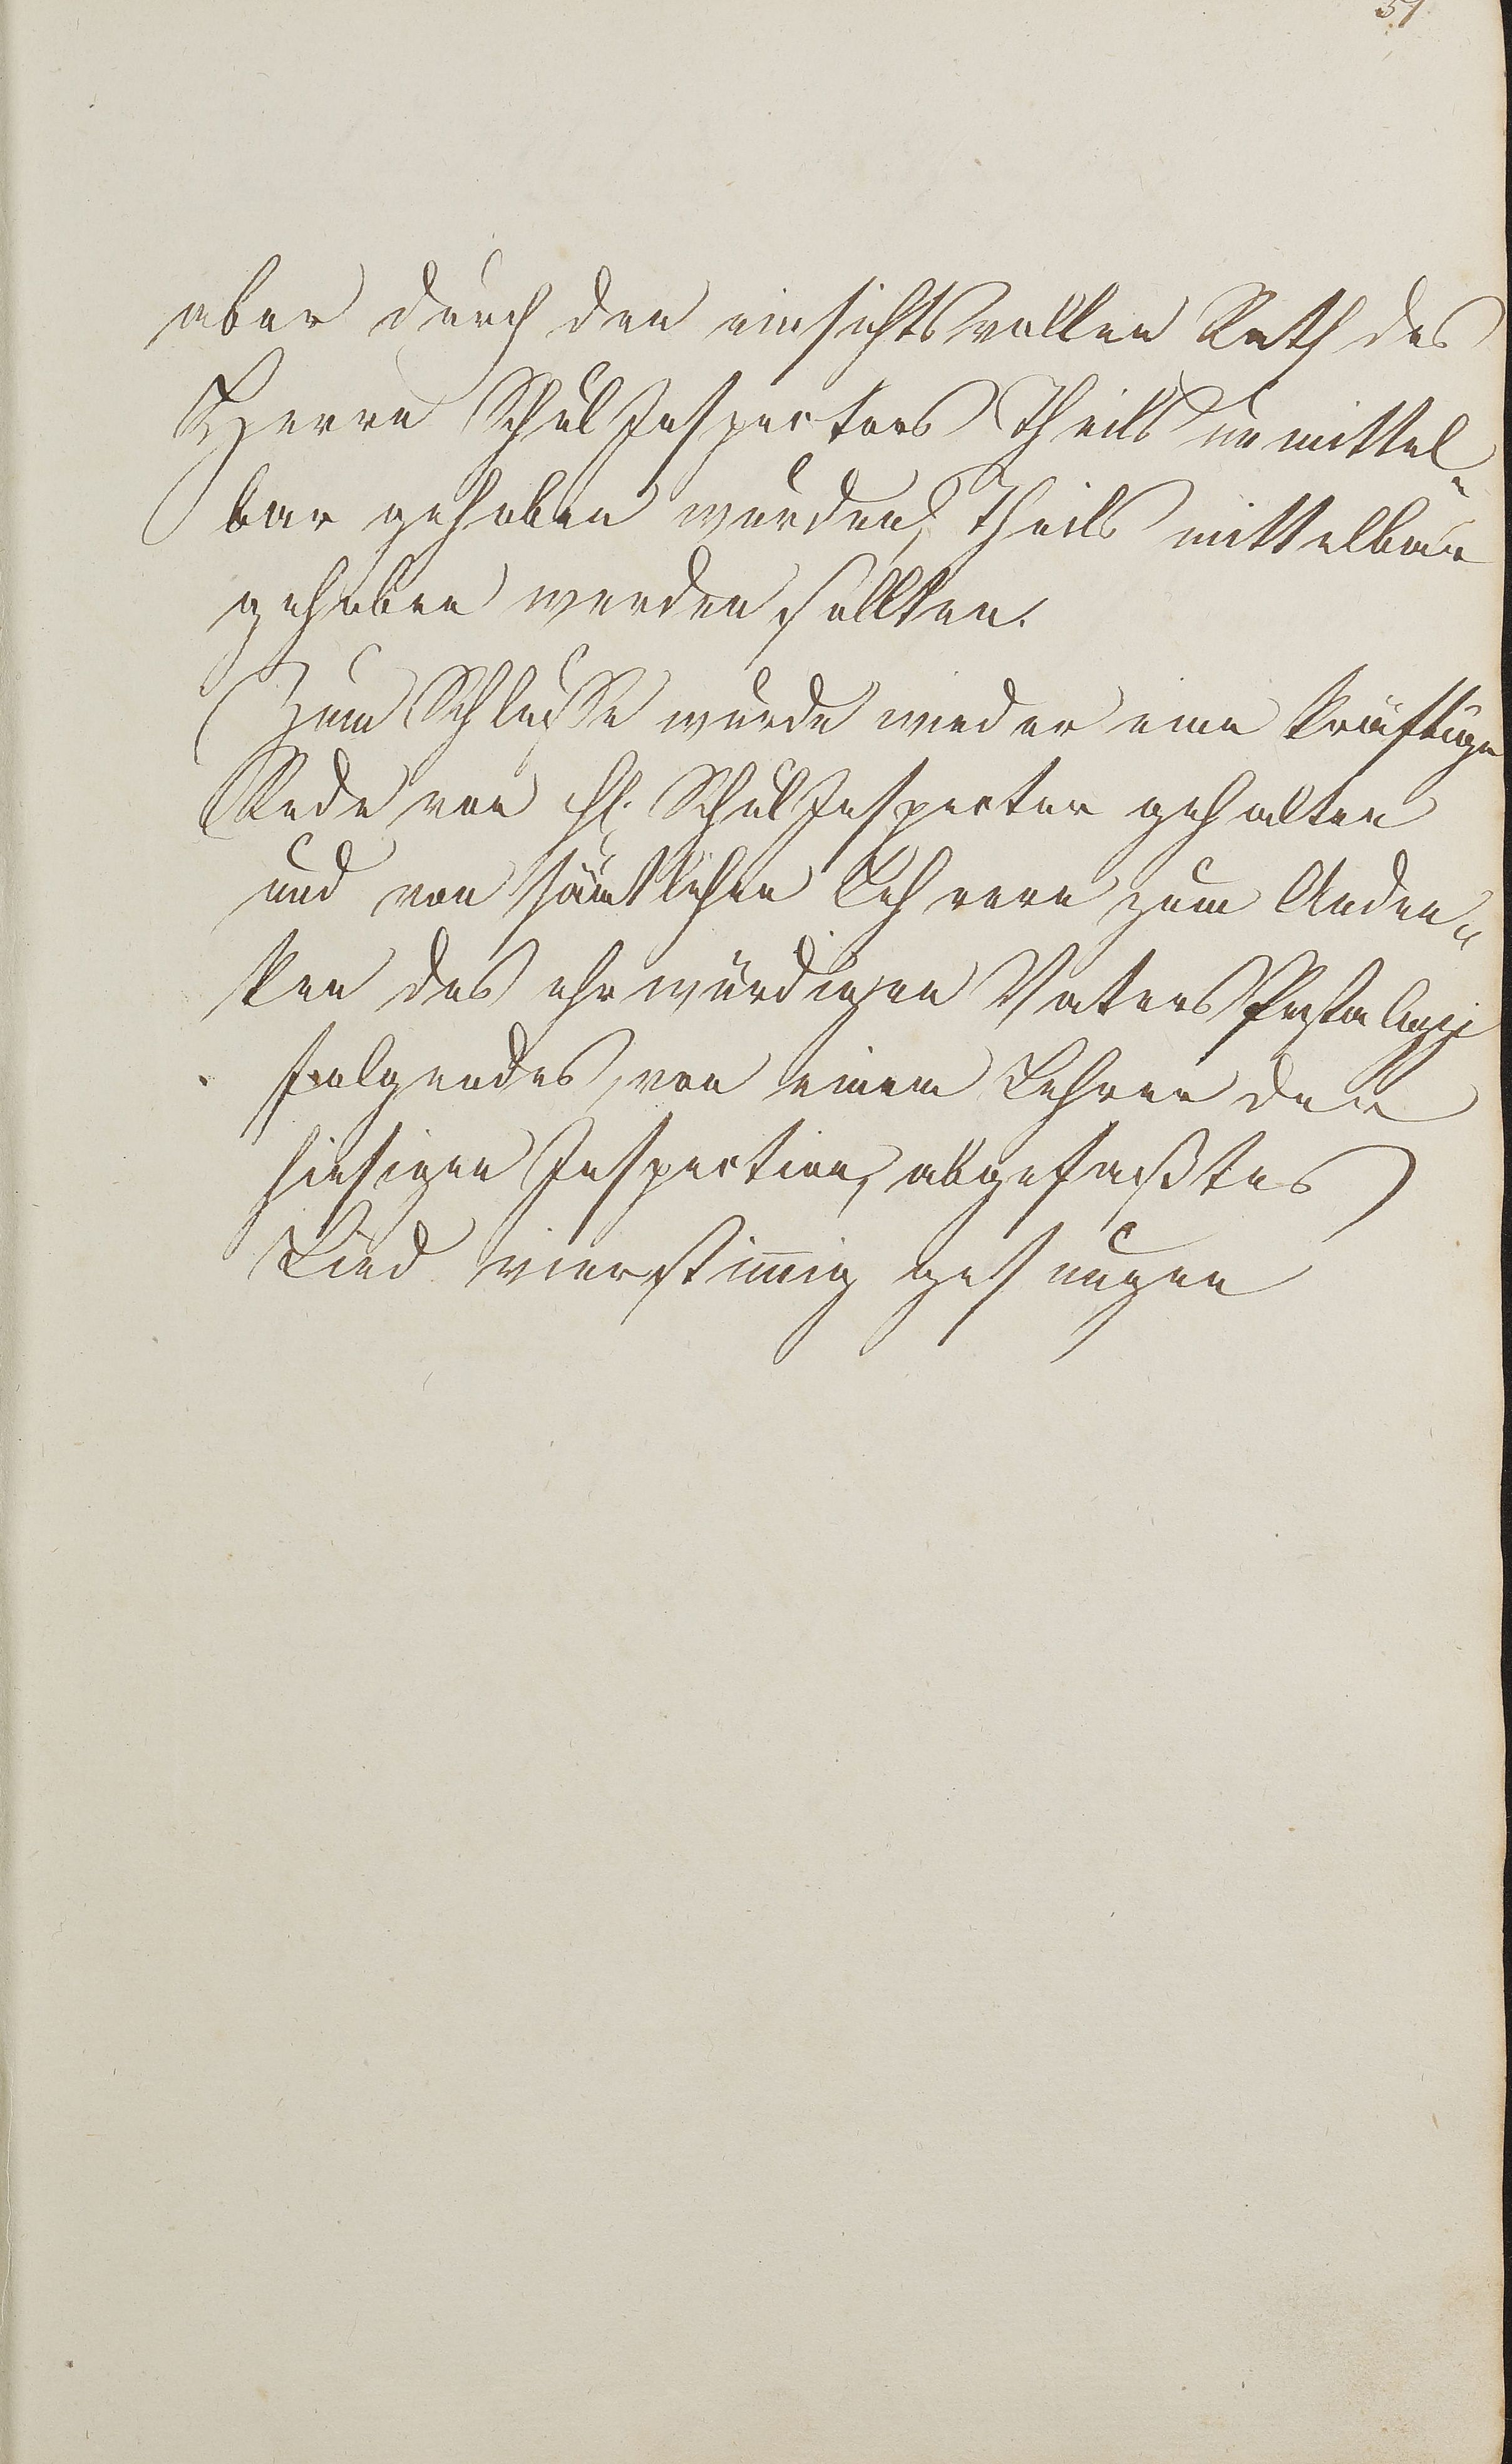 51
aber durch den einsichtsvollen Rath des
Herrn Schulinspectors Theils unmittel-
bar gehoben wurden, Theils mittelbar
gehoben werden sollten.
Zum Schlusse wurde wieder eine kräftige
Rede von H. Schulinspector gehalten
und von sämtlichen Lehrern zum Anden-
ken des ehrwürdigen Vaters Pestalozzi
folgendes, von einem Lehrer der
hiesigen Inspection, abgefaßtes
Lied vierstim̄ig gesungen